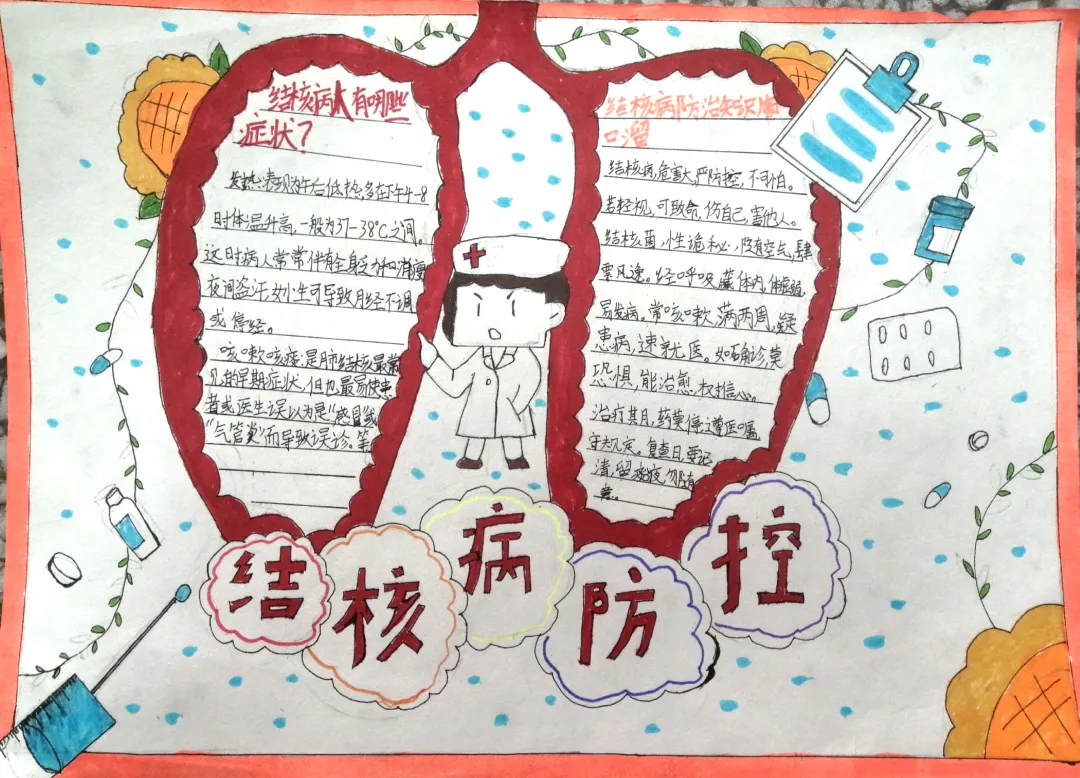 结核病人有哪些
症状？
发热：表现为午后低热，多在下午4-8
时体温升高，一般为37-38℃之间。
这时病人常常伴有全身乏力和消瘦
夜间盗汗，女生可导致月经不调
或停经。
咳嗽咳痰：是肺结核最常
见的早期症状，但也最易使患
者或医生误以为是“感冒或
“气管炎”而导致误诊。等
结核病防治知识顺
口溜
结核病，危害大，严防控，不可怕。
若轻视，可致命，伤自己，害他人。
结核菌，性诡秘，随空气，肆
要风逸。经呼吸，藏体内，体虚弱
易发病，常咳嗽，满两周，疑
患病，速就医。如确诊，莫
恐惧，能治愈，权信心。
治疗其月，药莫停，遵医嘱，
守规定。复查日，要记
清，留痰液，勿随
意。
结核病防控